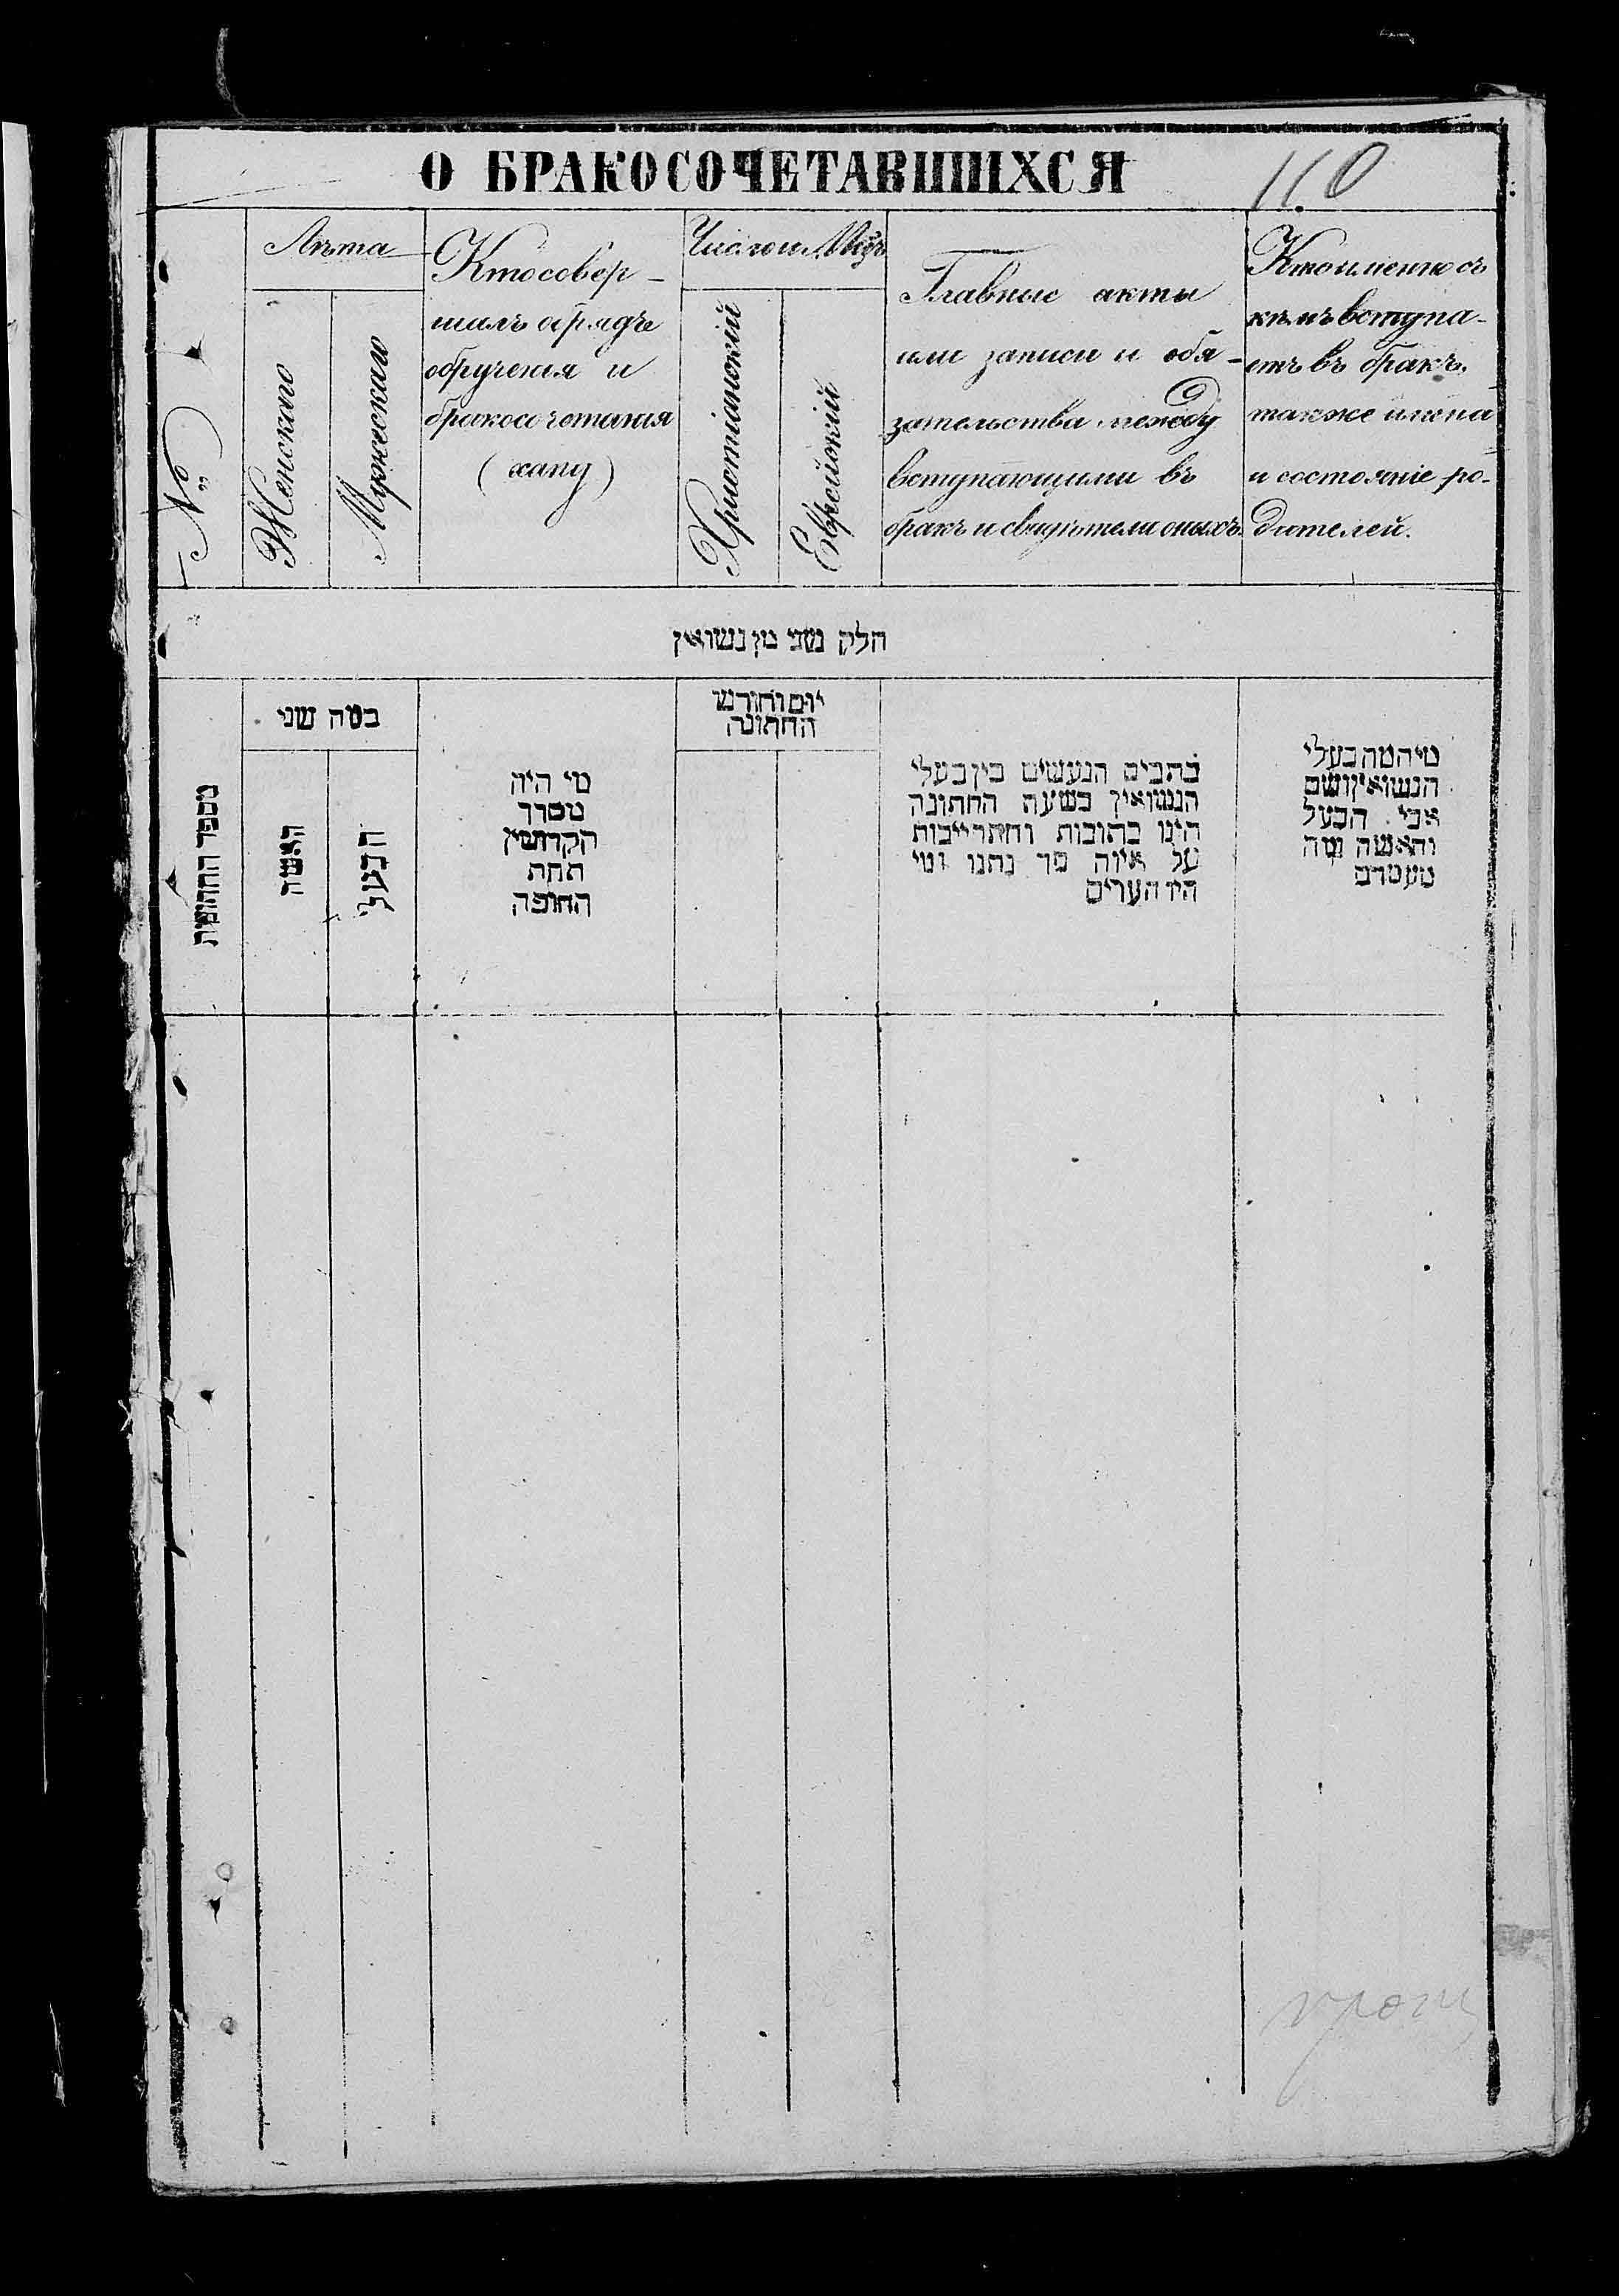 О БРАКОСОЧЕТАВШИХСЯ
110
№
Лѣта
Женскаго
Мужескаго
Кто совер-
шалъ обрядъ
обрученія и
бракосочетанія
(хапу)
Число и Мѣц
Христіанскій
Еврейскій
Главные акты
или записи и обя-
зательства между
вступающими въ
бракъ и свидѣтели оныхъ.
Кто именно съ
кѣмъ вступа-
етъ въ бракъ.
также имѣна
и состояніе ро-
дителей.
חלק שני מן נשואין
מספר החתונות
במה שני
האשה
הבעל
מי היה
מסדר
הקדושין
תחת
החופה
יום וחודש
החתונה
כתבים הנעשים בין בעלי
הנשואין בשעה החתונה
היינו כתובות וחתרייבות
על איזה סך נתנו ומי
היו העדים
מי המה בעלי
הנשואין ושם
אבי הבעל
והאשה ומה
מעמדם